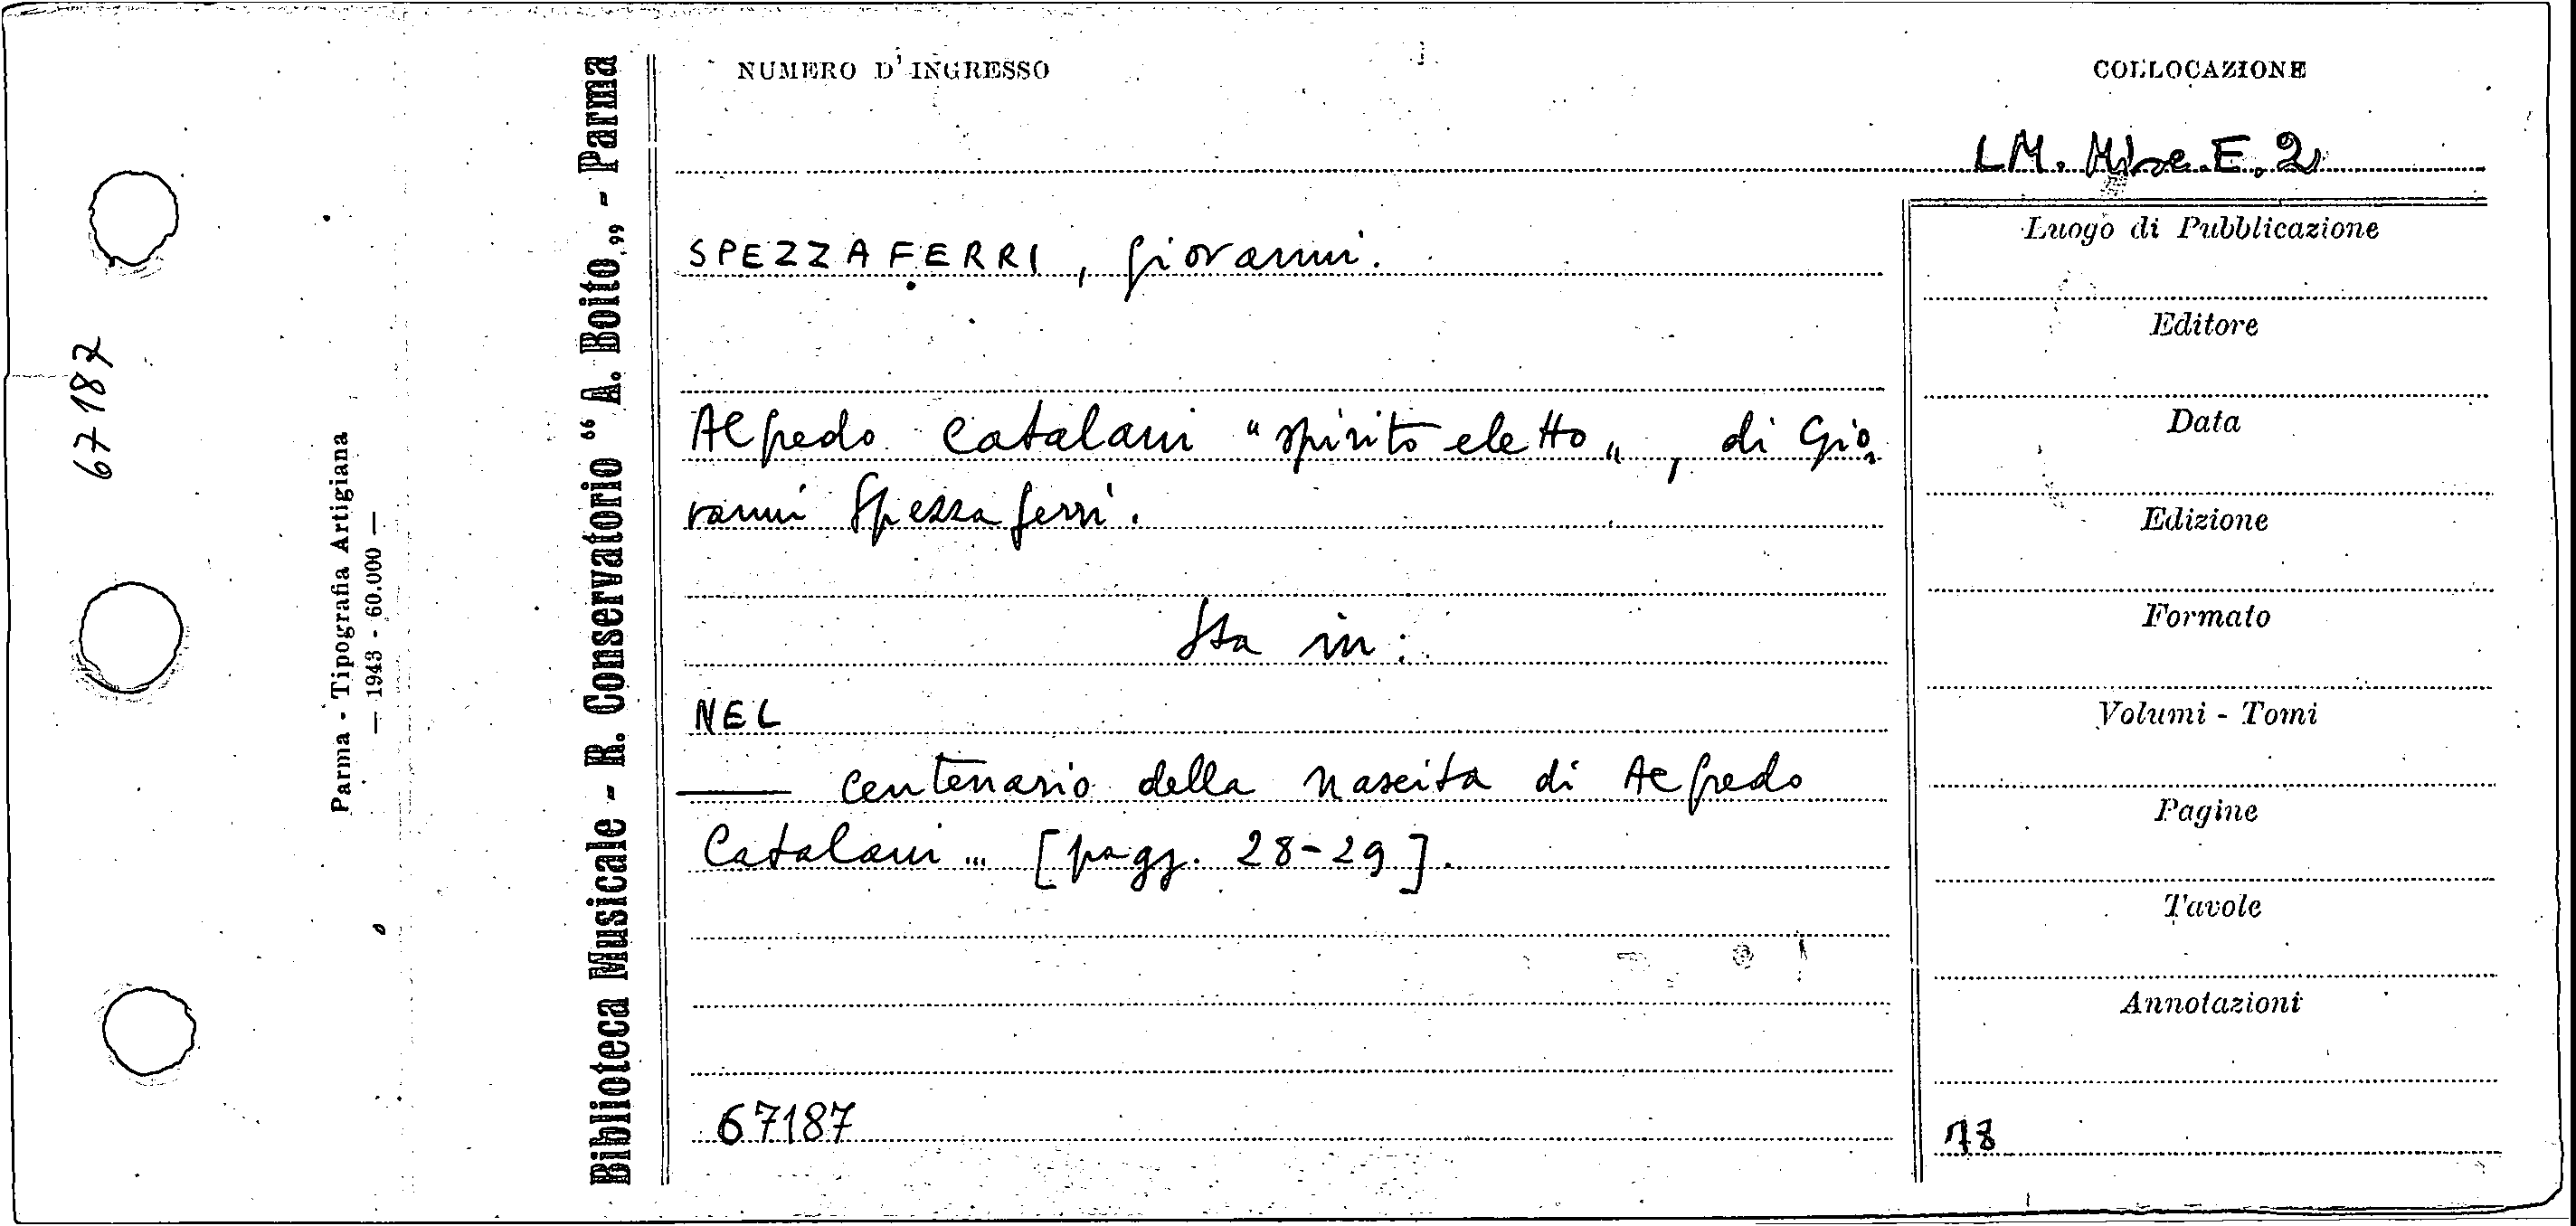 67187
Parma - Tipografia Artigiana
— 1943 - 60.000 —
Biblioteca Musicale - R. Conservatorio “ A. Boito „ - Parma
NUMERO D' INGRESSO
COLLOCAZIONE
LM. Misc. E. 2
SPEZZAFERRI, Giovanni.
Alfredo Catalani "spirito eletto", di Gio-
vanni Spezzaferri.
Sta in:
NEL
—— centenario della nascita di Alfredo
Catalani ... [pagg. 28-29].
67187
Luogo di Pubblicazione
Editore
Data
Edizione
Formato
Volumi - Tomi
Pagine
Tavole
Annotazioni
18